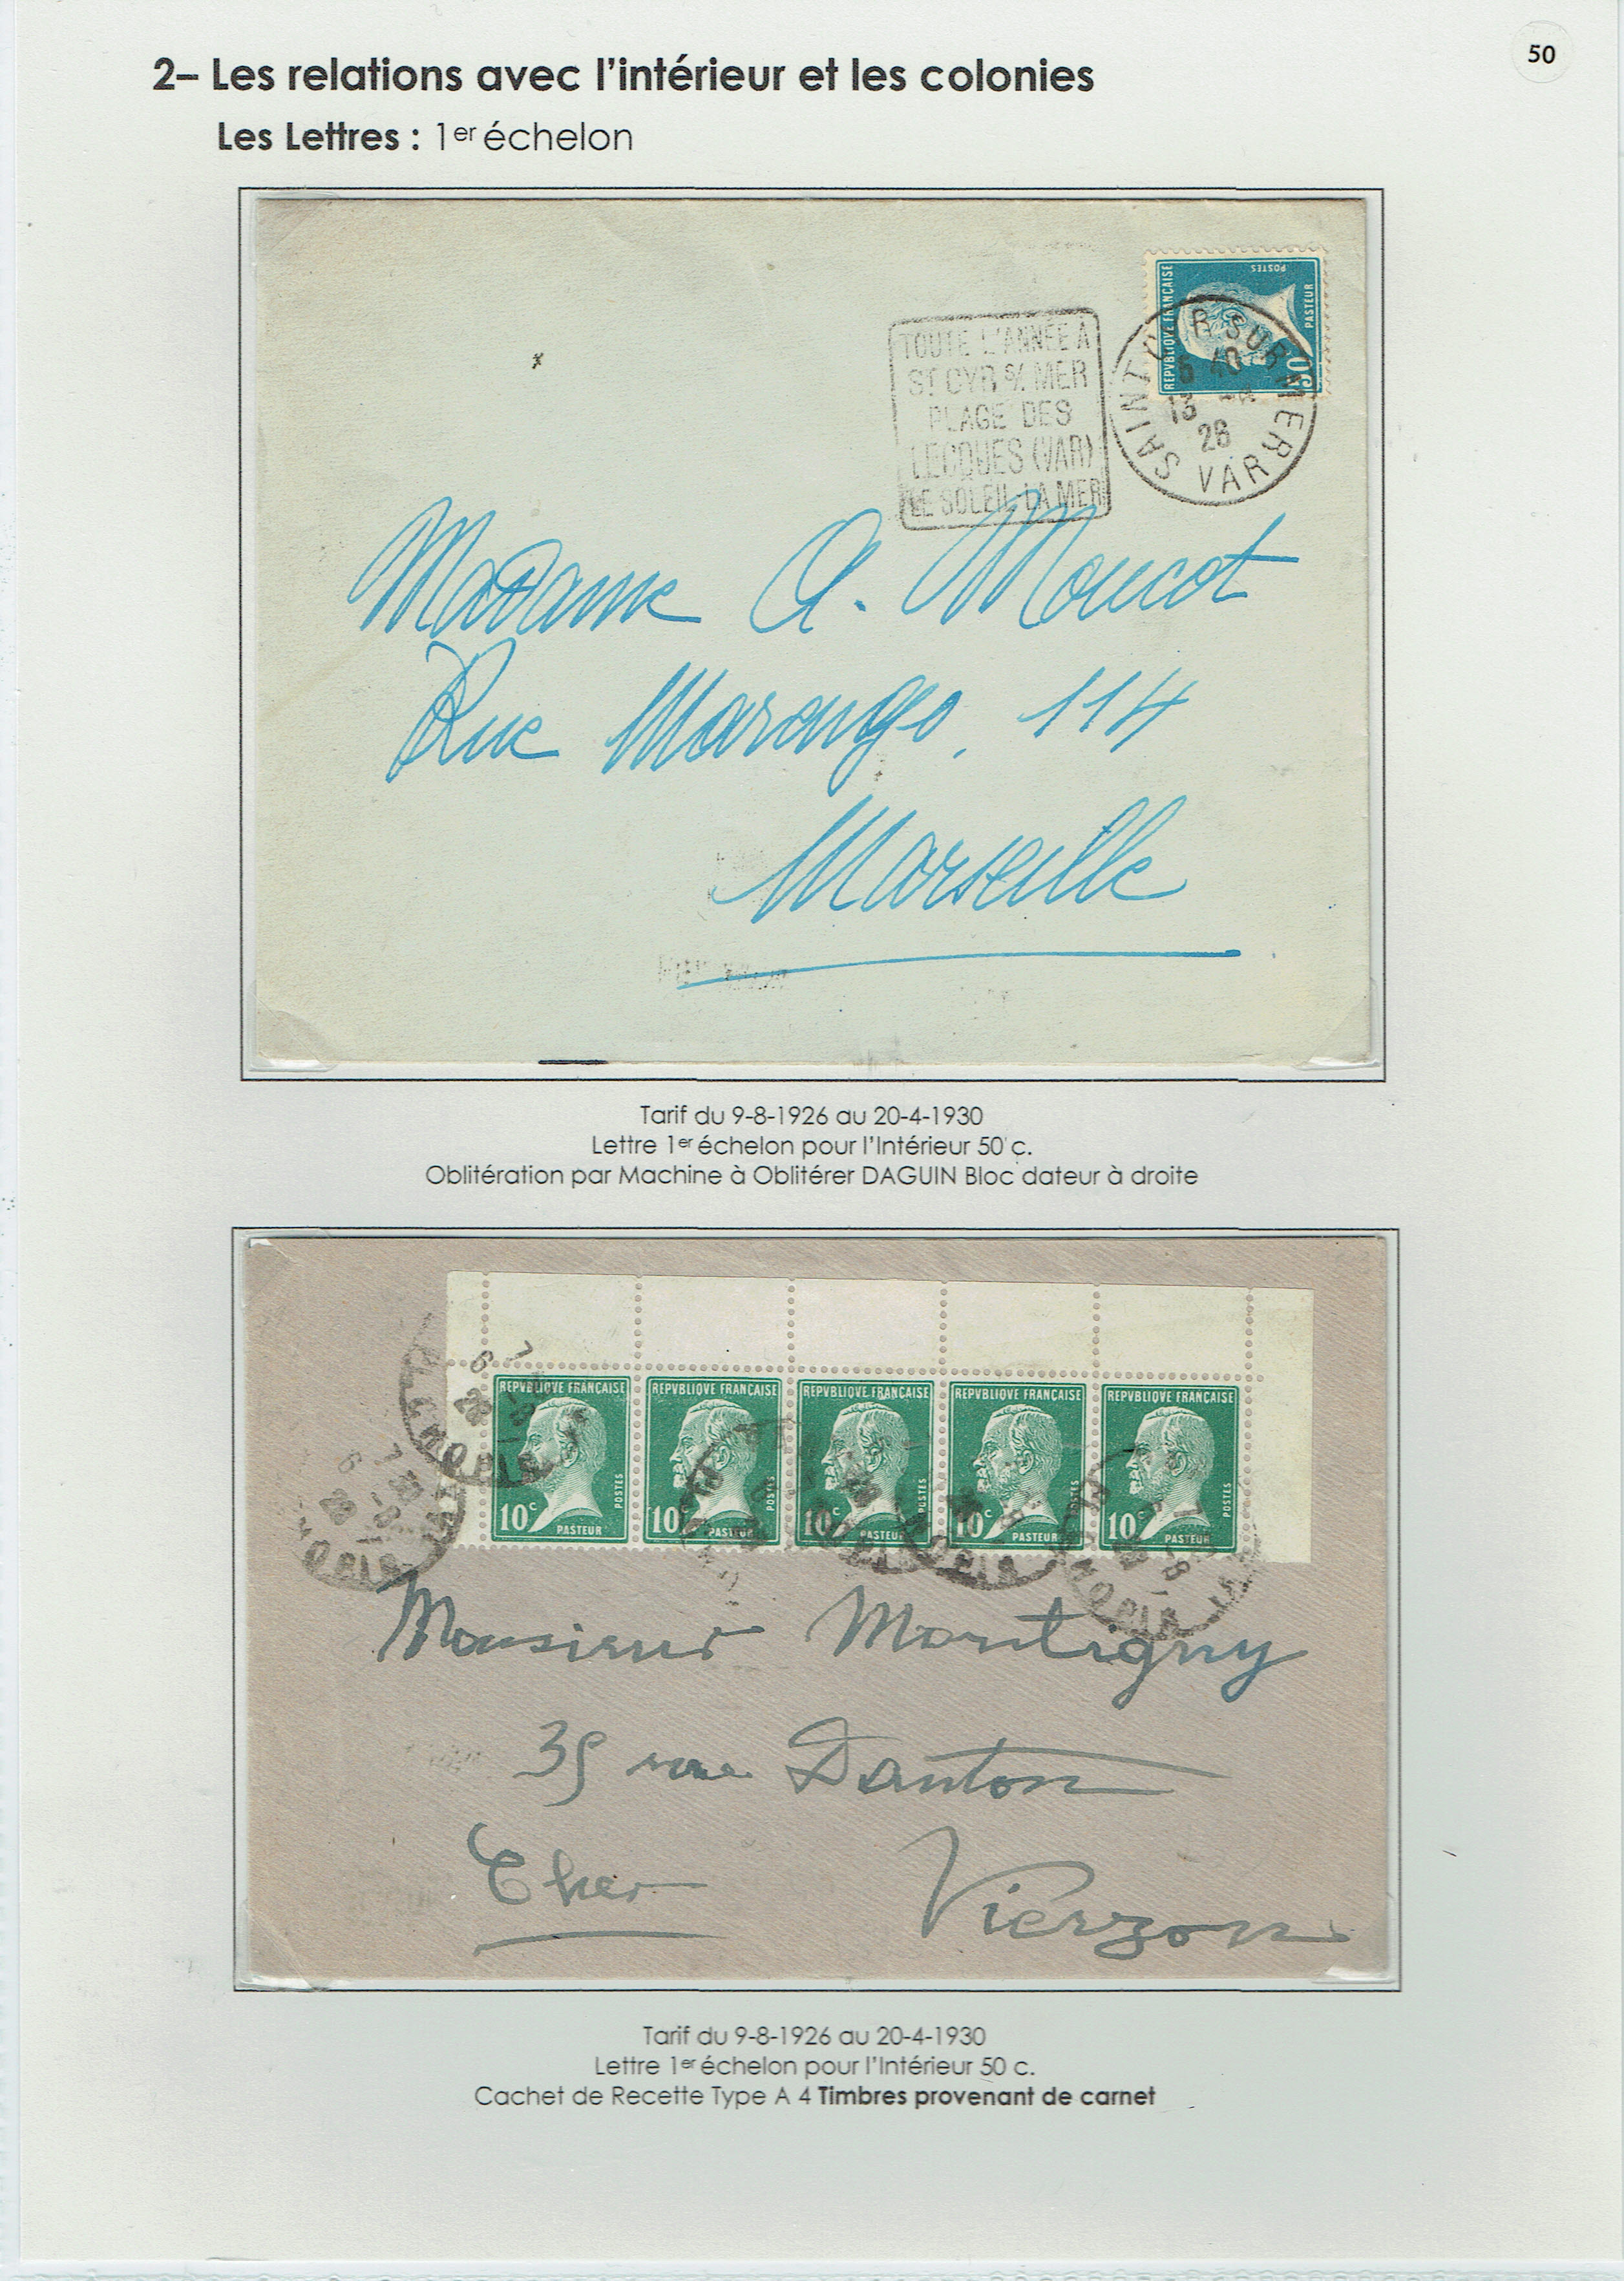 50
2– Les relations avec l'intérieur et les colonies
Les Lettres : 1er échelon
REPVBLIQVE FRANÇAISE
POSTES
PASTEUR
50
TOUTE L'ANNÉE A
ST CYR S/ MER
PLAGE DES
LECQUES (VAR)
LE SOLEIL-LA MER
SAINT CYR SUR MER
VAR
Madame A. Moucot
Rue Marengo, 114
Marseille
Tarif du 9-8-1926 au 20-4-1930
Lettre 1er échelon pour l'Intérieur 50 c.
Oblitération par Machine à Oblitérer DAGUIN Bloc dateur à droite
REPVBLIQVE FRANÇAISE REPVBLIQVE FRANÇAISE REPVBLIQVE FRANÇAISE REPVBLIQVE FRANÇAISE REPVBLIQVE FRANÇAISE
POSTES POSTES POSTES POSTES POSTES
10c PASTEUR 10c PASTEUR 10c PASTEUR 10c PASTEUR 10c PASTEUR
Monsieur Montigny
35 rue Danton
Cher Vierzon
Tarif du 9-8-1926 au 20-4-1930
Lettre 1er échelon pour l'Intérieur 50 c.
Cachet de Recette Type A 4 Timbres provenant de carnet